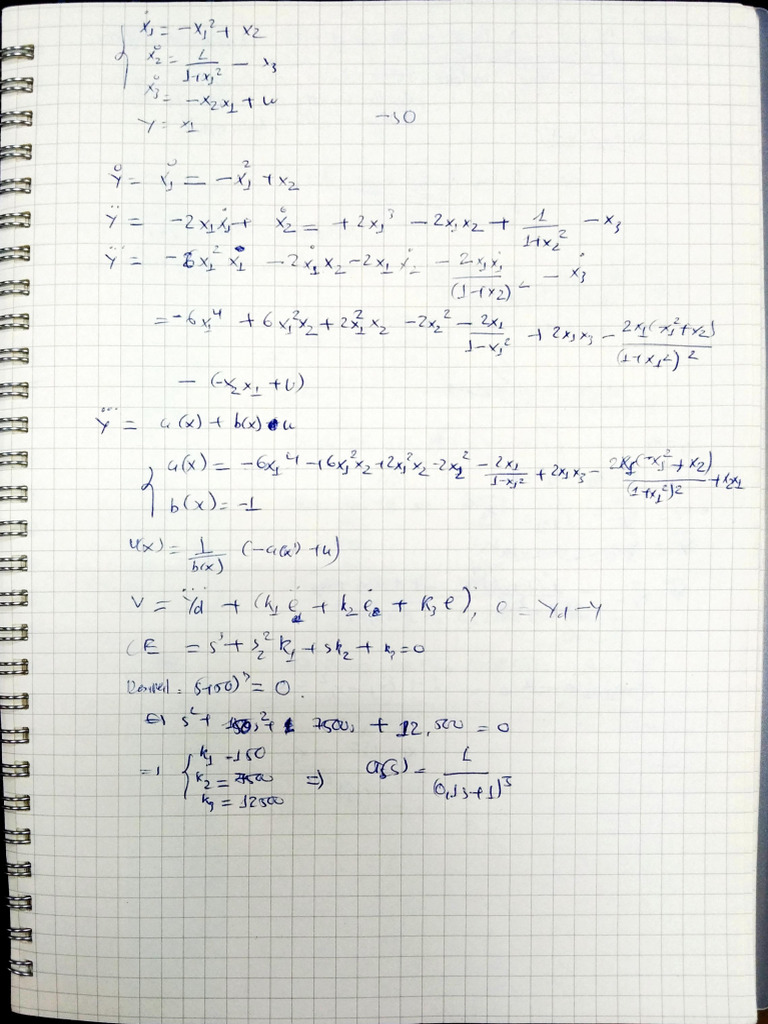 ẋ₁ = -x₁² + x₂
ẋ₂ = 1/(1+x₁²) - x₃
ẋ₃ = -x₂x₁ + u
y = x₁
-50
ẏ = ẋ₁ = -x₁² + x₂
ÿ = -2x₁ẋ₁ + ẋ₂ = +2x₁³ - 2x₁x₂ + 1/(1+x₂²) - x₃
y⃛ = -6x₁² ẋ₁ - 2ẋ₁x₂ - 2x₁ẋ₂ - 2x₁ẋ₁/(1+x₂)² - ẋ₃
= -6x₁⁴ + 6x₁²x₂ + 2x₁²x₂ - 2x₂² - 2x₁/(1-x₁²) + 2x₁x₃ - 2x₁(-x₁²+x₂)/(1+x₁²)²
- (-x₂x₁ + u)
y⃛ = a(x) + b(x) u
a(x) = -6x₁⁴ +6x₁²x₂ + 2x₁²x₂ - 2x₁² - 2x₁/(1-x₁²) + 2x₁x₃ - 2x₁(-x₁²+x₂)/(1+x₁²)² + x₂x₁
b(x) = -1
u(x) = 1/b(x) (-a(x) + u)
v = y⃛d + (k₁ ë + k₂ ė + k₃ e), e = yd - y
CE = s³ + s²k₁ + sk₂ + k₃ = 0
Desired: (s+50)³ = 0.
s² + 150s² + 7500s + 12,500 = 0
k₁ = 150
k₂ = 7500
k₃ = 12500
=> G(s) = 1/(0,1s+1)³